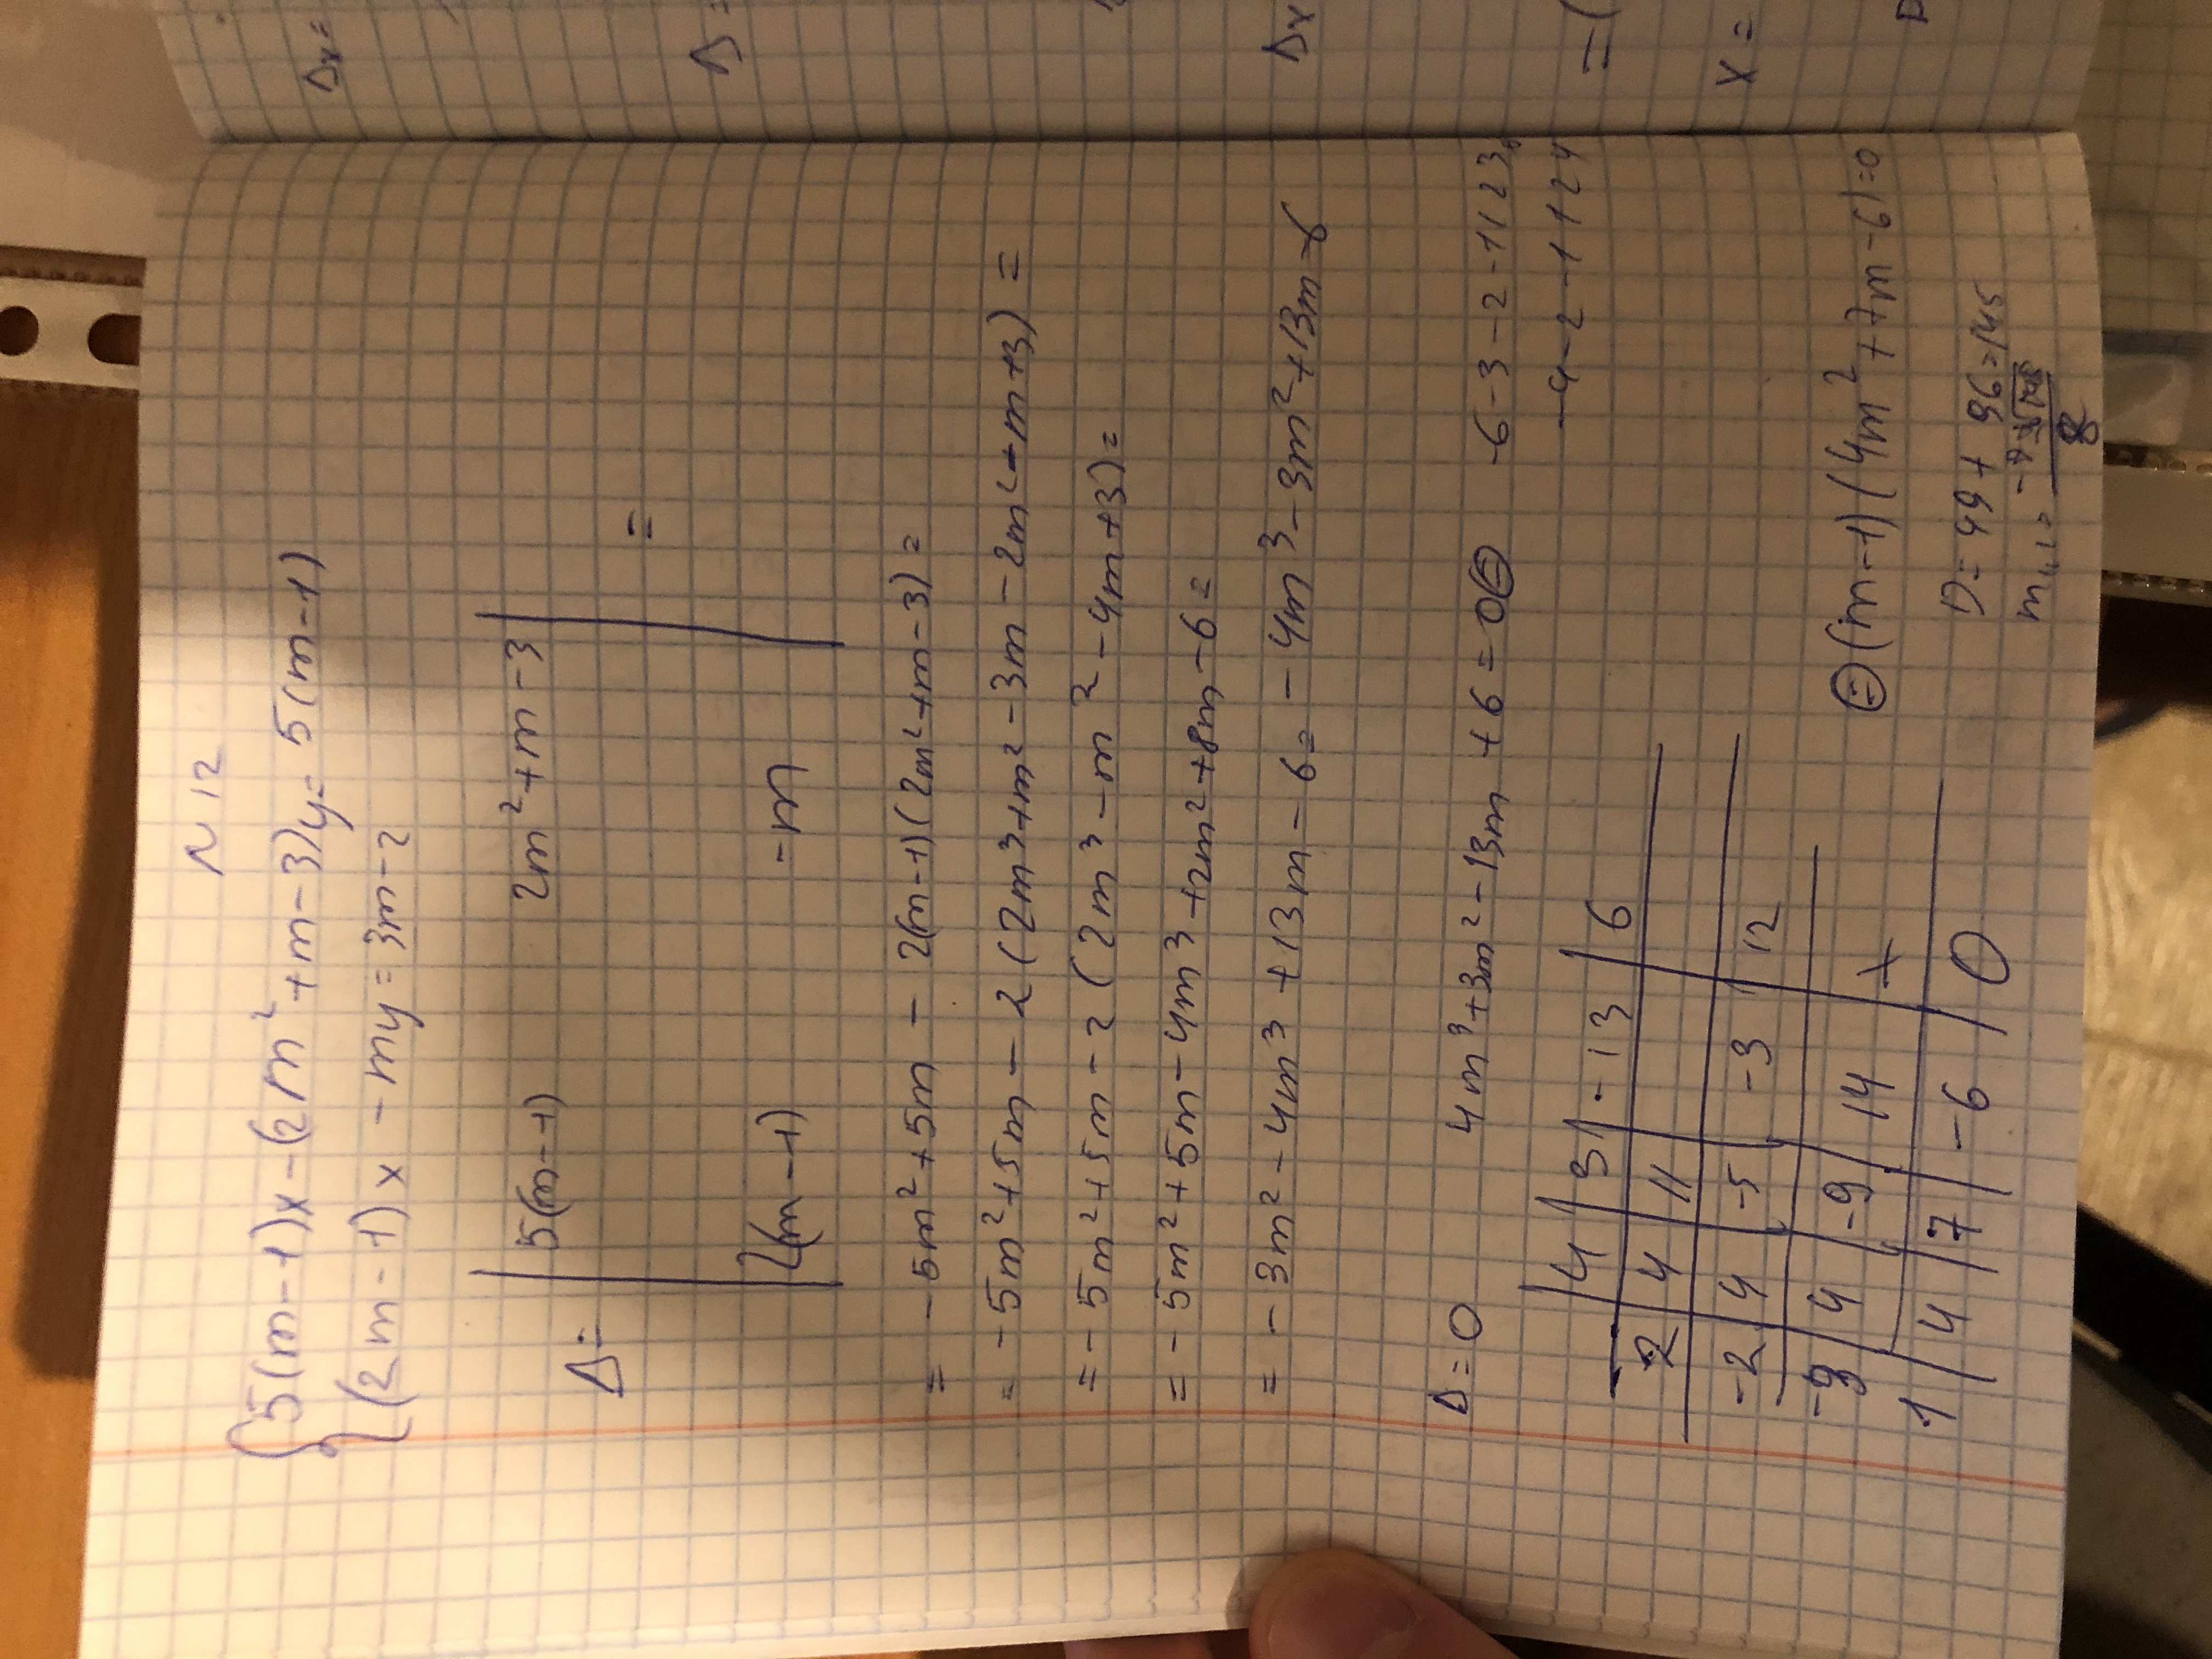 N 12
{5(m-1)x-(2m²+m-3)y= 5(m-1)
(2m-1)x -my=3m-2
Δ= |5(m-1) 2m²+m-3| =
2(m-1) -m
= -5m²+5m - 2(m-1)(2m²+m-3)=
= -5m²+5m-2(2m³+m²-3m-2m²-m+3)=
=-5m²+5m-2(2m³-m²-4m+3)=
=-5m²+5m-4m³+2m²+8m-6=
= -3m²-4m³+13m-6= -4m³-3m²+13m-6
Δ=0 4m³+3m²-13m+6=0⊜ -6-3-2-1123
-4-2-1124
4 3 -13 6
2 4 11
-2 4 -5 -3 12
-3 4 -9 14
1 4 7 -6 0
⊜(m-1)(4m²+7m-6)=0
D=49+96=145
8
Δx=
Δ=
Δx
=(
x=